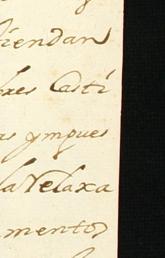 tiendan
bres Casti
as ympues
la Relaxa
mento